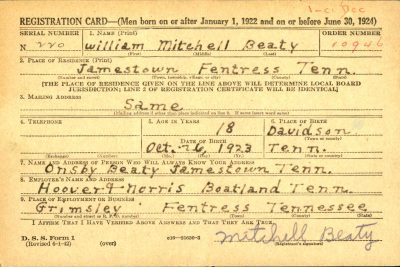 1-C1 Dec
REGISTRATION CARD—(Men born on or after January 1, 1922 and on or before June 30, 1924)
SERIAL NUMBER 1. NAME (Print) ORDER NUMBER
N 220 William Mitchell Beaty 10946
2. PLACE OF RESIDENCE (Print)
Jamestown Fentress Tenn.
(Number and street) (Town, township, village, or city) (County) (State)
[THE PLACE OF RESIDENCE GIVEN ON THE LINE ABOVE WILL DETERMINE LOCAL BOARD
JURISDICTION; LINE 2 OF REGISTRATION CERTIFICATE WILL BE IDENTICAL]
3. MAILING ADDRESS
Same
(Mailing address if other than place indicated on line 2. If same insert word same)
4. TELEPHONE 5. AGE IN YEARS 6. PLACE OF BIRTH
18 Davidson
DATE OF BIRTH
Oct. 26, 1923 Tenn.
(Exchange) (Number) (Mo.) (Day) (Yr.) (State or country)
7. NAME AND ADDRESS OF PERSON WHO WILL ALWAYS KNOW YOUR ADDRESS
Onsby Beaty Jamestown Tenn.
8. EMPLOYER'S NAME AND ADDRESS
Hoover & Norris Boatland Tenn.
9. PLACE OF EMPLOYMENT OR BUSINESS
Grimsley Fentress Tennessee
(Number and street or R. F. D. number) (Town) (County) (State)
I AFFIRM THAT I HAVE VERIFIED ABOVE ANSWERS AND THAT THEY ARE TRUE.
D. S. S. Form 1
(Revised 6-1-42) (over) Mitchell Beaty
(Registrant's signature)